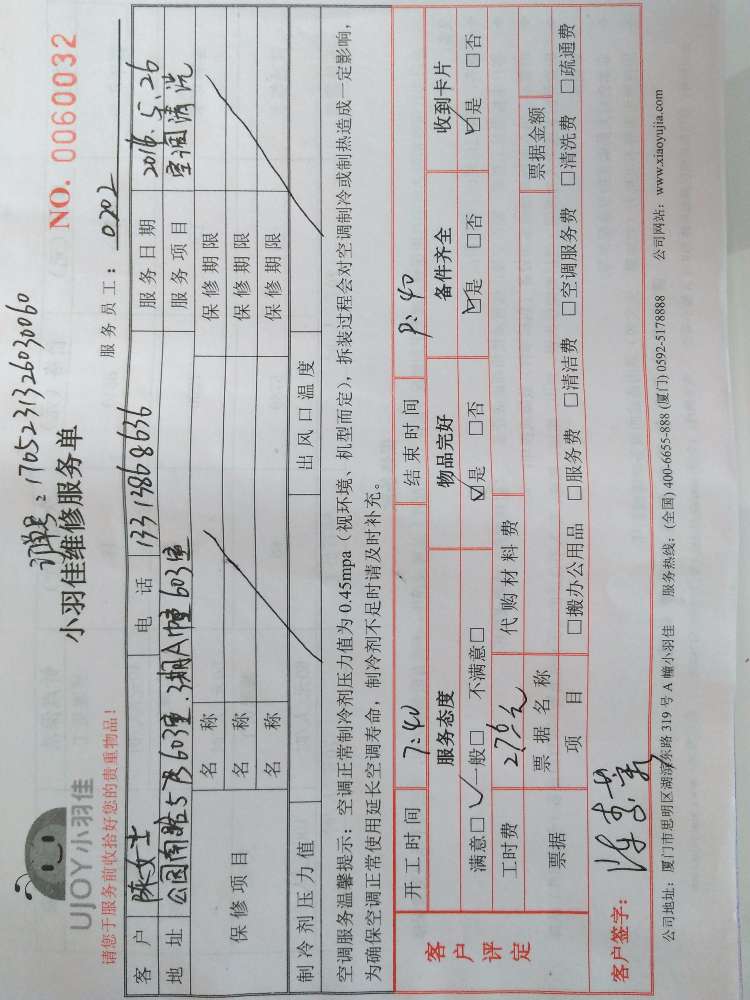 订单号：1705231326030060
NO. 0060032
UJOY小羽佳
小羽佳维修服务单
请您于服务前收拾好您的贵重物品！
服务员工： 0202
客 户 陈女士 电 话 13313868636 服务日期 2016.5.26
地 址 公园南路57号603室.3期A幢603室 服务项目 空调清洗
保修项目 名 称 保修期限
名 称 保修期限
名 称 保修期限
制冷剂压力值 出风口温度
空调服务温馨提示：空调正常制冷剂压力值为0.45mpa（视环境、机型而定），拆装过程会对空调制冷或制热造成一定影响，
为确保空调正常使用延长空调寿命，制冷剂不足时请及时补充。
客户评定 开工时间 7:40 结束时间 P:40
服务态度 物品完好 备件齐全 收到卡片
满意□ 一般□ 不满意□ ☑是 □否 ☑是 □否 ☑是 □否
工时费 276元 代购材料费
票据 票据名称 票据金额
项 目 □搬办公用品 □服务费 □清洁费 □空调服务费 □清洗费 □疏通费
客户签字：
公司地址：厦门市思明区湖滨东路319号A幢小羽佳 服务热线：(全国) 400-6655-888 (厦门) 0592-5178888 公司网站：www.xiaoyujia.com